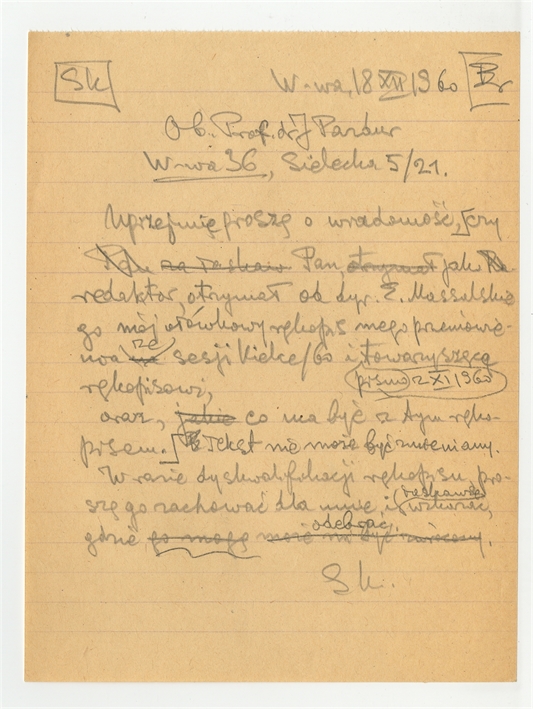 Sk W-wa, 18 XII 1960 Br
Ob. Prof. dr J Pazdur
W-wa 36, Sielecka 5/21.
Uprzejmie proszę o wiadomość, czy
Pan otrzymał jako
redaktor, otrzymał od dyr. E. Massalskie
go mój ołówkowy rękopis mego przemówie-
nia ze sesji Kielce/60 i towarzyszące
rękopisowi, pismo z XI 1960
oraz, jakie co ma być z tym ręko-
pisem. Tekst nie może być zmieniany.
W razie dyskwalifikacji rękopisu pro-
szę go zachować dla mnie, i łaskawie wskazać,
gdzie go mogę odebrać.
Sk.